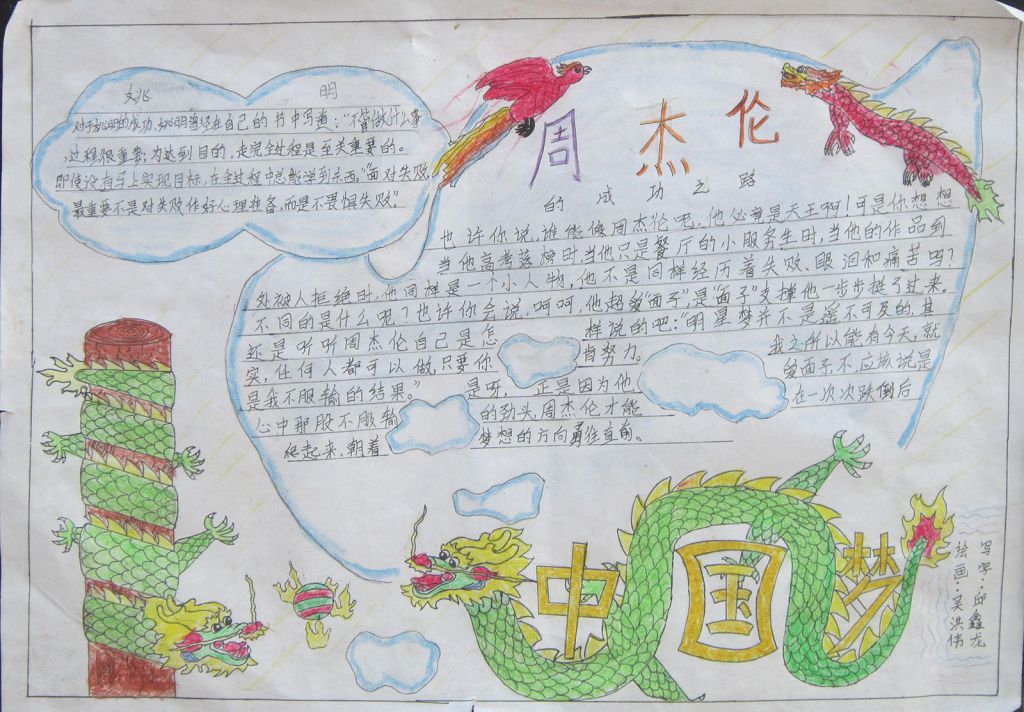 姚 明
对于姚明的成功,姚明曾经在自己的书中写道:“不管做什么事
,过程很重要;为达到目的,走完全过程是至关重要的。
即使没有马上实现目标,在全过程中总能学到东西。”“面对失败,
最重要不是对失败作好心理准备,而是不畏惧失败”。
周杰伦
的成功之路
也许你说,谁能像周杰伦呢,他必竟是天王啊!可是你想想
当他高考落榜时,当他只是餐厅的小服务生时,当他的作品到
处被人拒绝时,他同样是一个小人物,他不是同样经历着失败、眼泪和痛苦吗?
不同的是什么呢?也许你会说,呵呵,他超爱“面子”,是“面子”支撑他一步步挺了过来,
还是听听周杰伦自己是怎 样说的吧:“明星梦并不是遥不可及的,其
实,任何人都可以做,只要你 肯努力。 我之所以能有今天,就
是我不服输的结果。” 是呀, 正是因为他 爱面子,不应该说是
心中那股不服输 的劲头,周杰伦才能 在一次次跌倒后
终起来,朝着 梦想的方向勇往直前。
中国梦
写字:邱鑫龙
绘画:吴洪伟